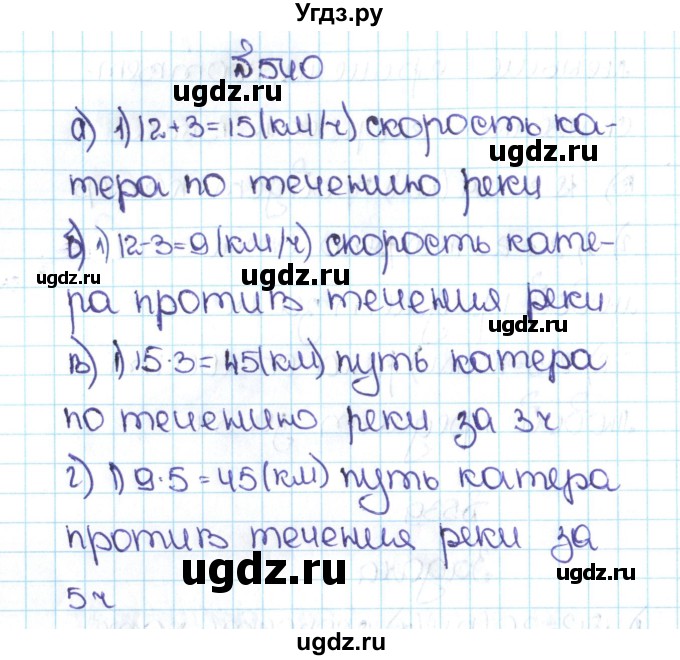 Угдз.ру
№540
ugdz.ru
а) 1) 12+3=15(км/ч) скорость ка-
ugdz.ru
тера по течению реки
б) 1) 12-3=9(км/ч) скорость кате-
ugdz.ru
ugdz.ru
ра против течения реки
ugdz.ru
в) 1) 15·3=45(км) путь катера
ugdz.ru
по течению реки за 3ч
ugdz.ru
г) 1) 9·5=45(км) путь катера
ugdz.ru
против течения реки за
ugdz.ru
ugdz.ru
5ч
ugdz.ru